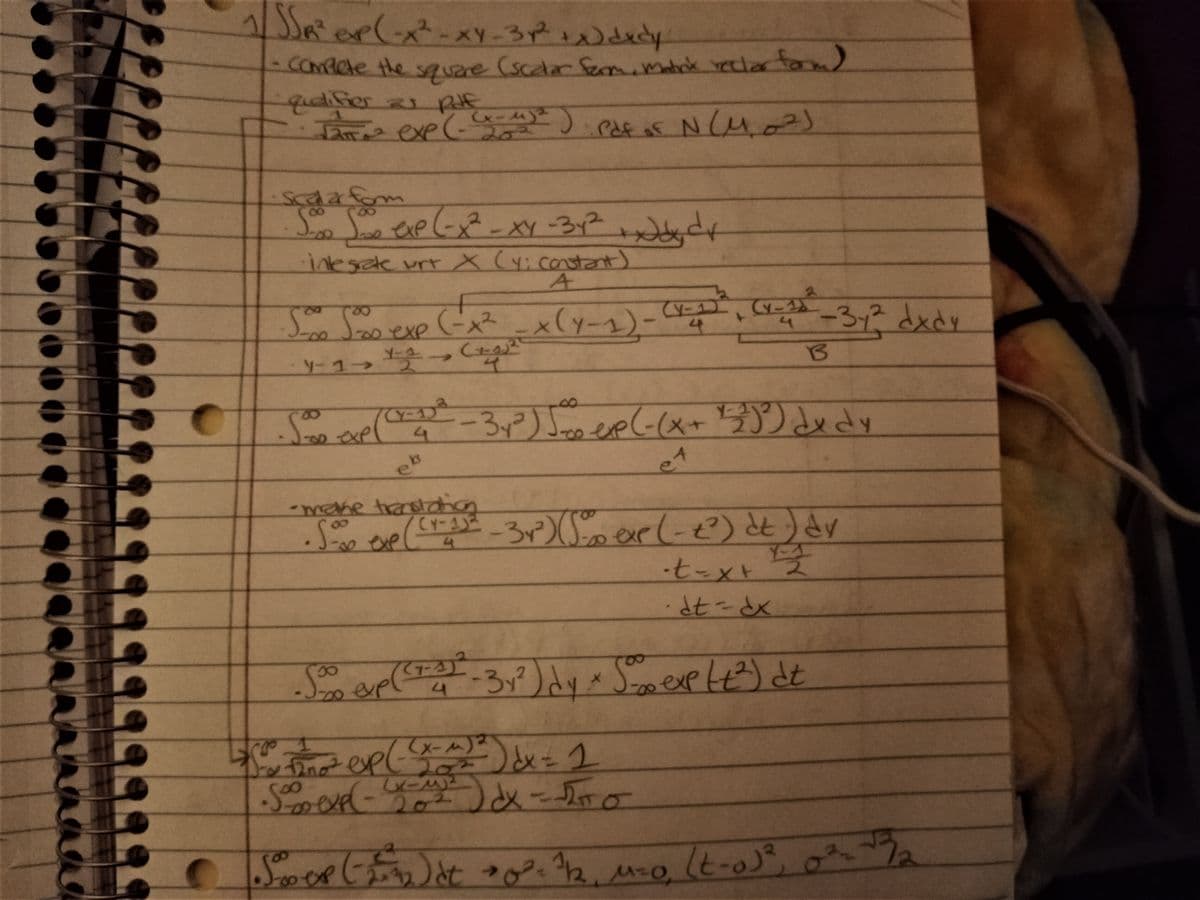 1) ∬ℝ² exp(-x² - xy - 3y² + x) dxdy
- complete the square (scalar form, matrix vector form)
qualifies as pdf
· 1/√2πσ² exp(-(x-μ)²/2σ²) : pdf of N(μ, σ²)
· scalar form
∫-∞^∞ ∫-∞^∞ exp(-x² - xy - 3y² + x) dx dy
· integrate wrt x (y: constant)
A
∫-∞^∞ ∫-∞^∞ exp(-x² - x(y-1) - (y-1)²/4 + (y-1)²/4 - 3y² dxdy
· y-1 → y-1/2 → (y-1)²/4 B
· ∫-∞^∞ exp((y-1)²/4 - 3y²) ∫-∞^∞ exp(-(x + y-1/2)²) dx dy
e^B e^A
- make translation
· ∫-∞^∞ exp((y-1)²/4 - 3y²)(∫-∞^∞ exp(-t²) dt) dy
· t = x + y-1/2
· dt = dx
· ∫-∞^∞ exp((y-1)²/4 - 3y²) dy × ∫-∞^∞ exp(-t²) dt
→ ∫-∞^∞ 1/√2πσ² exp(-(x-μ)²/2σ²) dx = 1
· ∫-∞^∞ exp(-(x-μ)²/2σ²) dx = √2π σ
· ∫-∞^∞ exp(-t²/2·1/2) dt → σ² = 1/2, μ=0, (t-0)², σ² =